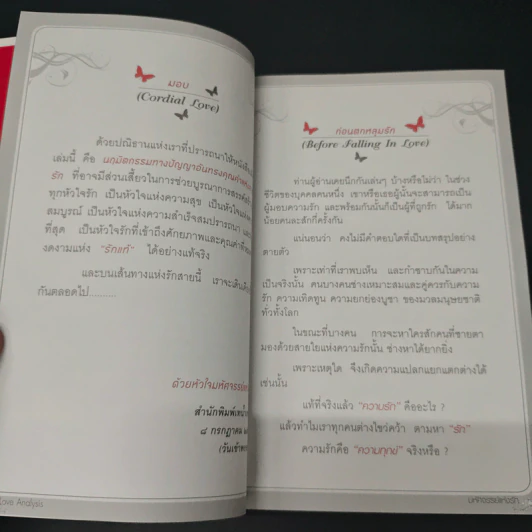 มอบ
(Cordial Love)
ด้วยปณิธานแห่งเราที่ปรารถนาให้หนังสือ
เล่มนี้ คือ นฤมิตกรรมทางปัญญาอันทรงคุณค่า
รัก ที่อาจมีส่วนเสี้ยวในการช่วยบูรณาการ
ทุกหัวใจรัก เป็นหัวใจแห่งความสุข เป็นหัวใจ
สมบูรณ์ เป็นหัวใจแห่งความสำเร็จสมปรารถนา
ที่สุด เป็นหัวใจที่เข้าถึงศักยภาพและคุณค่า
งดงามแห่ง "รักแท้" ได้อย่างแท้จริง
และบนเส้นทางแห่งรักสายนี้ เราจะ
กันตลอดไป.........
ด้วยหัวใจ
สำนักพิมพ์
๘ กรกฎาคม
(วันเข้า
Love Analysis
ก่อนตกหลุมรัก
(Before Falling In Love)
ท่านผู้อ่านเคยนึกกันเล่นๆ บ้างหรือไม่ว่า ในช่วง
ชีวิตของบุคคลคนหนึ่ง เขาหรือเธอผู้นั้นจะสามารถเป็น
ผู้มอบความรัก และพร้อมกันนั้นก็เป็นผู้ที่ถูกรัก ได้มาก
น้อยคนละสักกี่ครั้งกัน
แน่นอนว่า คงไม่มีคำตอบใดที่เป็นบทสรุปอย่าง
ตายตัว
เพราะเท่าที่เราพบเห็น และกำซาบกันในความ
เป็นจริงนั้น คนบางคนช่างเหมาะสมและคู่ควรกับความ
รัก ความเทิดทูน ความยกย่องบูชา ของมวลมนุษยชาติ
ทั่วทั้งโลก
ในขณะที่บางคน การจะหาใครสักคนที่ชายตา
มองด้วยสายใยแห่งความรักนั้น ช่างหาได้ยากยิ่ง
เพราะเหตุใด จึงเกิดความแปลกแยกแตกต่างได้
เช่นนั้น
แท้ที่จริงแล้ว "ความรัก" คืออะไร ?
แล้วทำไมเราทุกคนต่างไขว่คว้า ตามหา "รัก"
ความรักคือ "ความทุกข์" จริงหรือ ?
มหัศจรรย์แห่งรัก